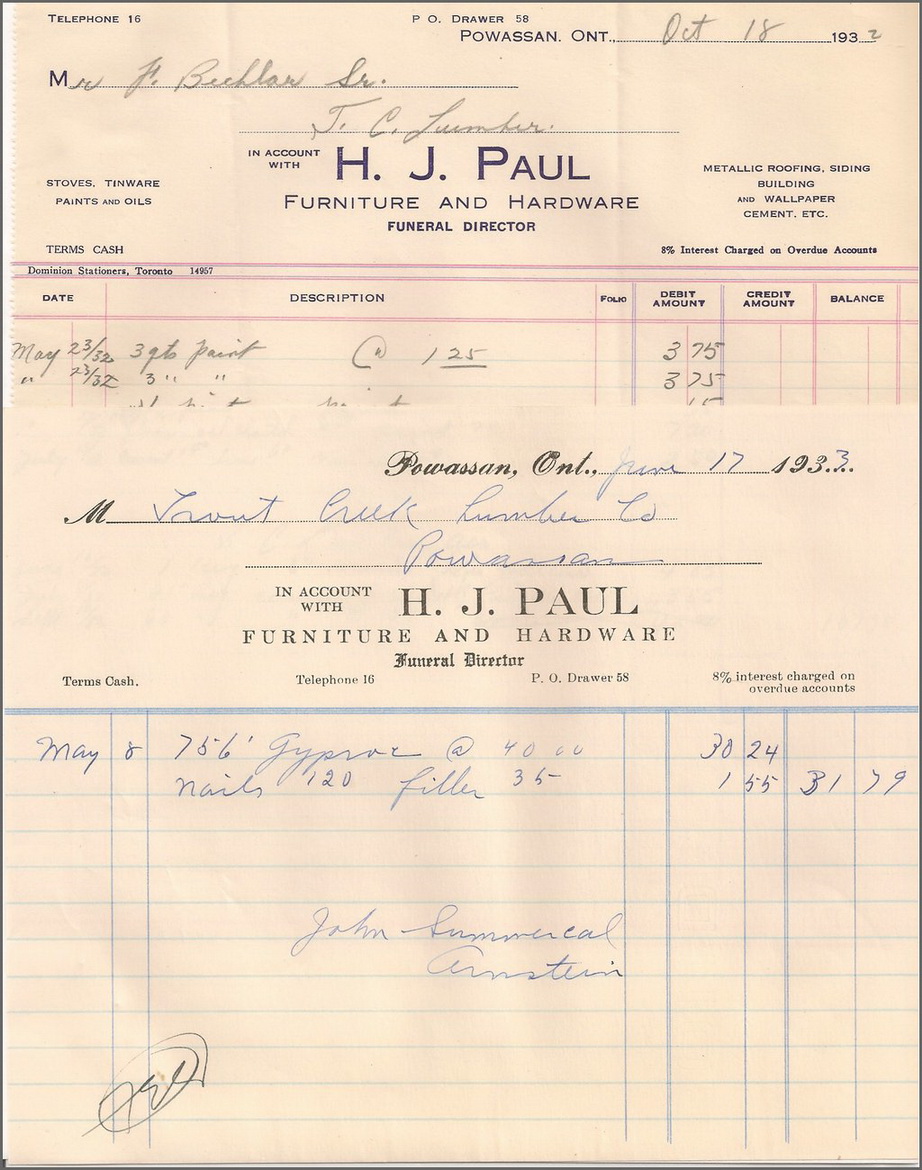 TELEPHONE 16 P O. DRAWER 58
POWASSAN. ONT., Oct 18 1932
Mr F. Sr.
T. C. Lumber.
IN ACCOUNT WITH H. J. PAUL
STOVES, TINWARE
PAINTS AND OILS
FURNITURE AND HARDWARE
FUNERAL DIRECTOR
METALLIC ROOFING, SIDING
BUILDING
AND WALLPAPER
CEMENT. ETC.
TERMS CASH 8% Interest Charged on Overdue Accounts
Dominion Stationers, Toronto 14957
DATE DESCRIPTION FOLIO DEBIT AMOUNT CREDIT AMOUNT BALANCE
May 23/32 3 qts paint @ 1 25 3 75
" 23/32 3 " " 3 75
Powassan, Ont., June 17 1933.
M Trout Creek Lumber Co
Powassan
IN ACCOUNT WITH H. J. PAUL
FURNITURE AND HARDWARE
Funeral Director
Terms Cash. Telephone 16 P. O. Drawer 58 8% interest charged on
overdue accounts
May 8 756' Gyproc @ 40 00 30 24
nails 120 filler 35 1 55 31 79
John Summercal
Arnstein